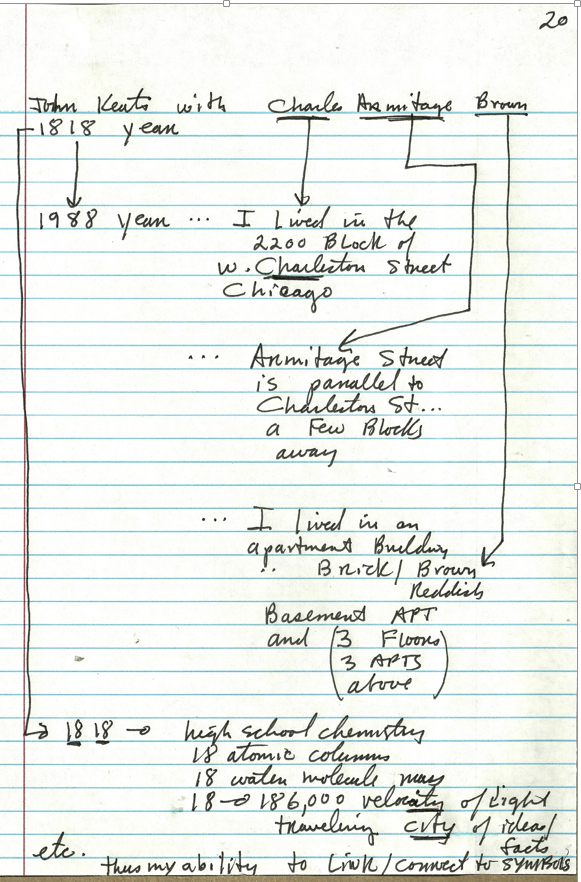 20
John Keats with Charles Armitage Brown
1818 year
1988 year ... I Lived in the
2200 Block of
W. Charleston Street
Chicago
... Armitage Street
is parallel to
Charleston St...
a Few Blocks
away
... I lived in an
apartment Building
.. Brick/Brown
Reddish
Basement APT
and (3 Floors
3 APTS
above)
18 18 → high school chemistry
18 atomic columns
18 water molecule mass
18 → 186,000 velocity of Light
traveling city of ideas/
facts
etc. thus my ability to Link/connect to symbols